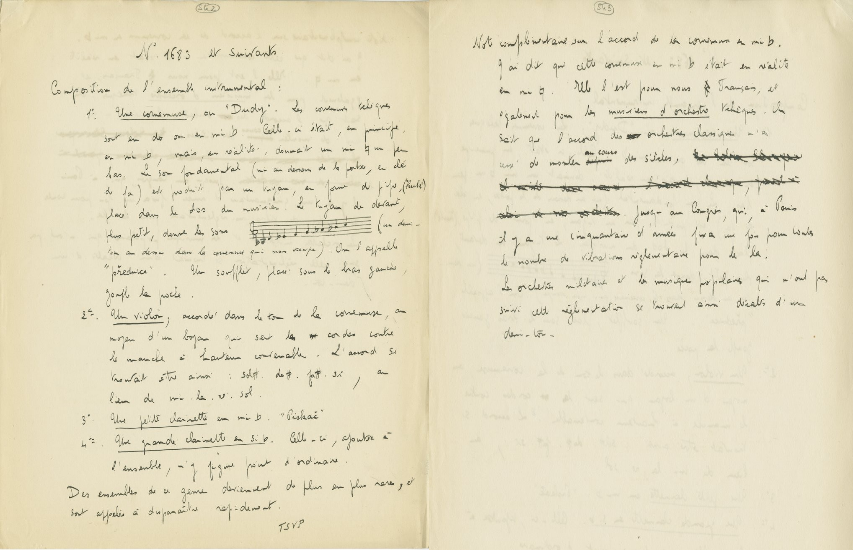 562
Nos 1683 et suivants
Composition de l'ensemble instrumental :
1°. Une cornemuse, ou "Dudy". Les cornemuses tchèques
sont en do ou en mi b. Celle-ci était, en principe
en mi b, mais, en réalité, donnait un mi ♮ un peu
bas. Le son fondamental (mi au dessous de la portée, en clé
de fa) est produit par un tuyau, en forme de pipe,
placé dans le dos du musicien. Le tuyau de devant,
plus petit, donne les sons (un demi-
ton au dessus dans la cornemuse qui nous occupe) On l'appelle
"přednice". Un soufflet, placé sous le bras gauche,
gonfle la poche.
2°. Un violon, accordé dans le ton de la cornemuse, au
moyen d'un boyau qui serre les cordes contre
le manche à hauteur convenable. L'accord se
trouvait être ainsi : sol#. do#. fa#. si, au
lieu de mi. la. ré. sol.
3° Une petite clarinette en mi b. "Piskač"
4°. Une grande clarinette en si b. Celle-ci, ajoutée à
l'ensemble, n'y figure point d'ordinaire.
Des ensembles de ce genre deviennent de plus en plus rares, et
sont appelés à disparaître rapidement.
TSVP
563
Note complémentaire sur l'accord de la cornemuse en mi b.
J'ai dit que cette cornemuse en mi b était en réalité
en mi ♮. Elle l'est pour nous Français, et
également pour les musiciens d'orchestre tchèques. On
sait que l'accord des orchestres classiques n'a
cessé de monter au cours des siècles,
jusqu'au Congrès, qui, à Paris
il y a une cinquantaine d'années fixa une fois pour toutes
le nombre de vibrations réglementaire pour le la.
Les orchestres militaires et les musiques populaires qui n'ont pas
suivi cette réglementation se trouvent ainsi décalés d'un
demi-ton.